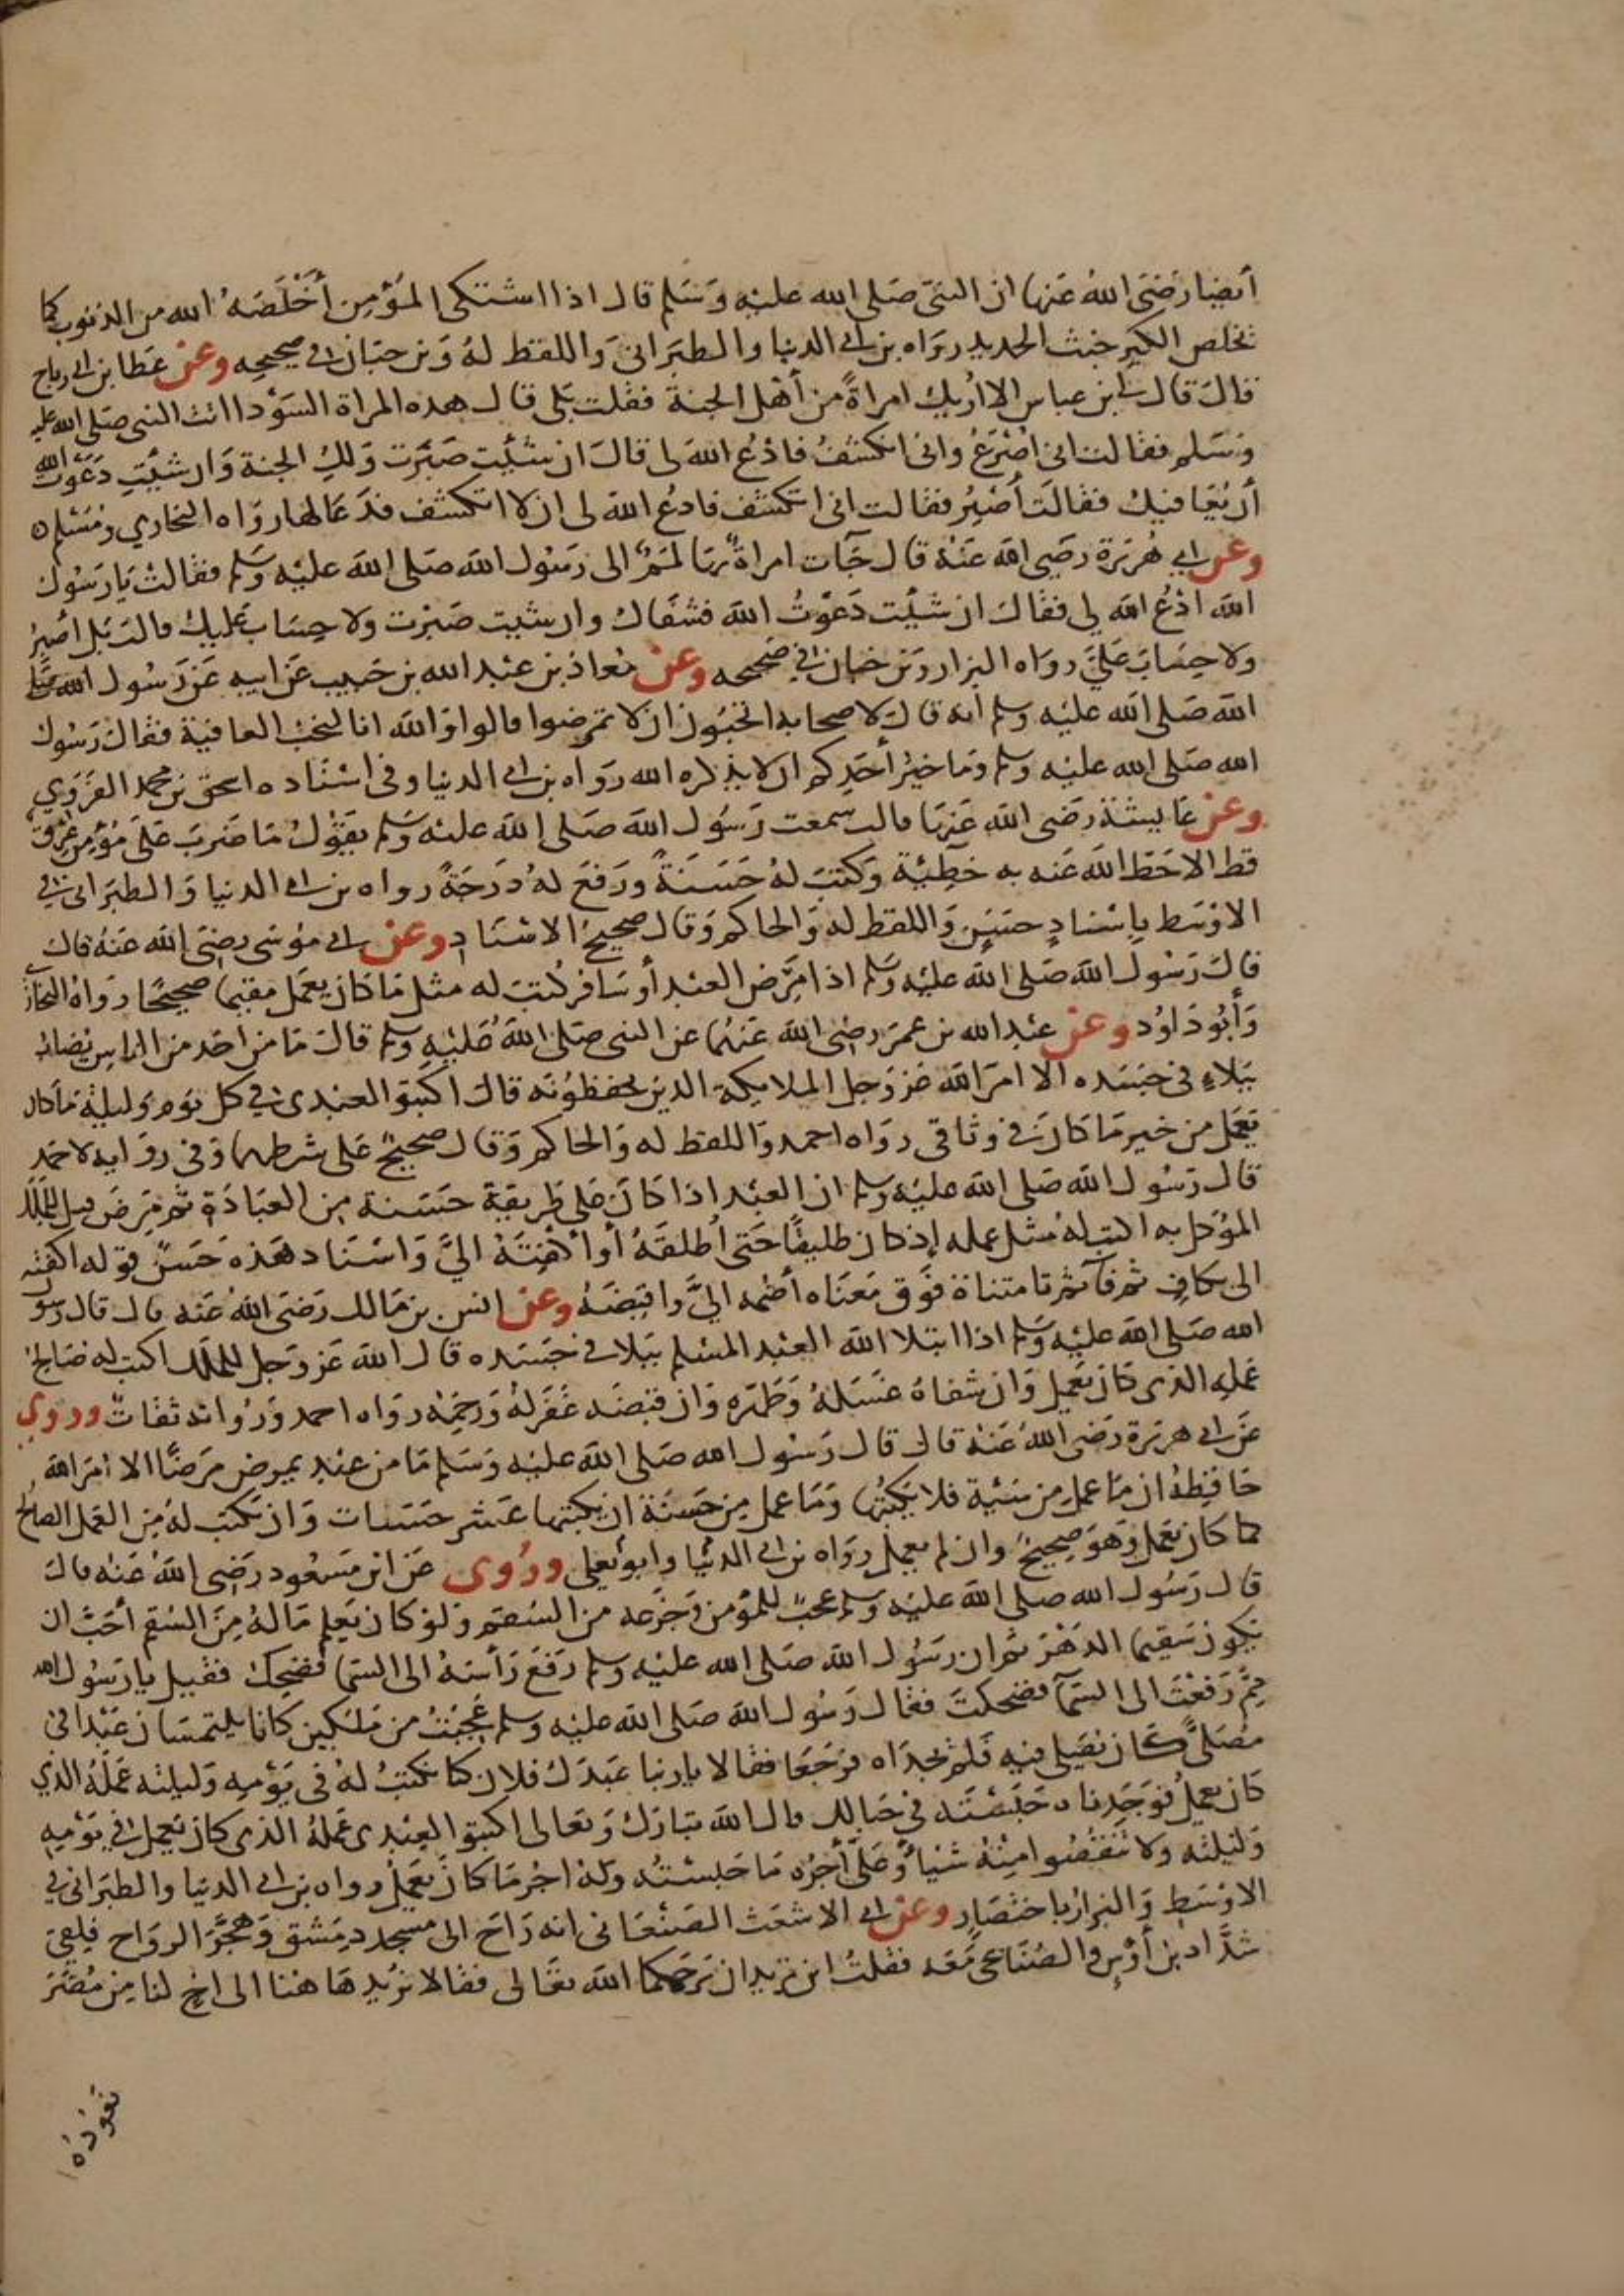 أيضا رضى الله عنها ان النبى صلى الله عليه وسلم قال اذا اشتكى المؤمن أخلصه الله من الذنوب كما
تخلص الكير خبث الحديد رواه بن ابى الدنيا والطبرانى واللفظ له وبن حبان فى صحيحه وعن عطا بن ابى رباح
قال قال لى بن عباس الا اريك امراة من أهل الجنة فقلت بلى قال هذه المراة السودا اتت النبى صلى الله عليه
وسلم فقالت انى اصرع وانى انكشف فادع الله لى قال ان شئت صبرت ولك الجنة وان شئت دعوت الله
أن يعافيك فقالت أصبر فقالت انى اتكشف فادع الله لى ان لا اتكشف فدعا لها رواه البخاري ومسلم
وعن ابي هريرة رضي الله عنه قال جآت امراة بها لمم الى رسول الله صلى الله عليه وسلم فقالت يا رسول
الله ادع الله لي فقال ان شئت دعوت الله فشفاك وان شئت صبرت ولا حساب عليك قالت بل اصبر
ولا حساب علي رواه البزار وبن حبان في صحيحه وعن معاذ بن عبد الله بن خبيب عن ابيه عن رسول الله
الله صلى الله عليه وسلم انه قال لاصحابه اتحبون ان لا تمرضوا قالوا والله انا لنحب العافية فقال رسول
الله صلى الله عليه وسلم وما خير أحدكم ان لا يذكره الله رواه بن ابى الدنيا وفى اسناده اسحق بن محمد الفروي
وعن عايشة رضى الله عنها قالت سمعت رسول الله صلى الله عليه وسلم يقول ما ضرب على مؤمن عرق
قط الا حط الله عنه به خطيئة وكتب له حسنة ورفع له درجة رواه بن ابى الدنيا والطبرانى في
الاوسط باسناد حسن واللفظ له والحاكم وقال صحيح الاسناد وعن ابى موسى رضى الله عنه قال
قال رسول الله صلى الله عليه وسلم اذا مرض العبد أو سافر كتب له مثل ما كان يعمل مقيما صحيحا رواه البخاري
وأبو داود وعن عبد الله بن عمر رضى الله عنهما عن النبى صلى الله عليه وسلم قال ما من احد من الناس يصاب
ببلاء فى جسده الا امر الله عز وجل الملايكة الذين يحفظونه قال اكتبوا لعبدى في كل يوم وليلة ما كان
يعمل من خير ما كان فى وثاقى رواه احمد واللفظ له والحاكم وقال صحيح على شرطهما وفى رواية لاحمد
قال رسول الله صلى الله عليه وسلم ان العبد اذا كان على طريقة حسنة من العبادة ثم مرض قيل للملك
المؤكل به اكتب له مثل عمله إذ كان طليقا حتى أطلقه أو أكفته الي واسناد هذه حسن قوله اكفته
الى بكاف ثم فآ ثم تا مثناة فوق معناه أضمه الي واقبضه وعن انس بن مالك رضى الله عنه قال قال رسول
الله صلى الله عليه وسلم اذا ابتلا الله العبد المسلم ببلا فى جسده قال الله عز وجل للملك اكتب له صالح
عمله الذى كان يعمل وان شفاه غسله وطهره وان قبضه غفر له ورحمه رواه احمد ورواته ثقات وروي
عن ابى هريرة رضى الله عنه قال قال رسول الله صلى الله عليه وسلم ما من عبد يمرض مرضا الا امر الله
حافظه ان ما عمل من سئية فلا يكبتها وما عمل من حسنة ان يكبتها عشر حسنات وان يكتب له من العمل الصالح
كما كان يعمل وهو صحيح وان لم يعمل رواه بن ابى الدنيا وابو يعلى وروى عن ابن مسعود رضى الله عنه قال
قال رسول الله صلى الله عليه وسلم عجب للمؤمن وجزعه من السقم ولو كان يعلم ما له من السقم أحب ان
يكون سقيما الدهر ثم ان رسول الله صلى الله عليه وسلم رفع رأسه الى السما فضحك فقيل يا رسول الله
مم رفعت الى السمآ فضحكت فقال رسول الله صلى الله عليه وسلم عجبت من ملكين كانا يلتمسان عبدا فى
مصلى كان يصلى فيه فلم يجداه فرجعا فقالا يا ربنا عبدك فلان كنا نكتب له فى يومه وليلته عمله الذي
كان يعمل فوجدناه حبسته في حبالك قال الله تبارك وتعالى اكتبوا لعبدى عمله الذى كان يعمل فى يومه
وليلته ولا تنقصوا منه شيأ وعلى أجره ما حبسته وله اجر ما كان يعمل رواه بن ابى الدنيا والطبرانى في
الاوسط والبزار باختصار وعن ابى الاشعث الصنعانى انه راح الى مسجد دمشق وهجر الرواح فلقى
شداد بن أوس والصنابحى معه فقلت اين تريدان يرحمكما الله تعالى فقالا نريد هاهنا الى اخ لنا من مضر
نعوده